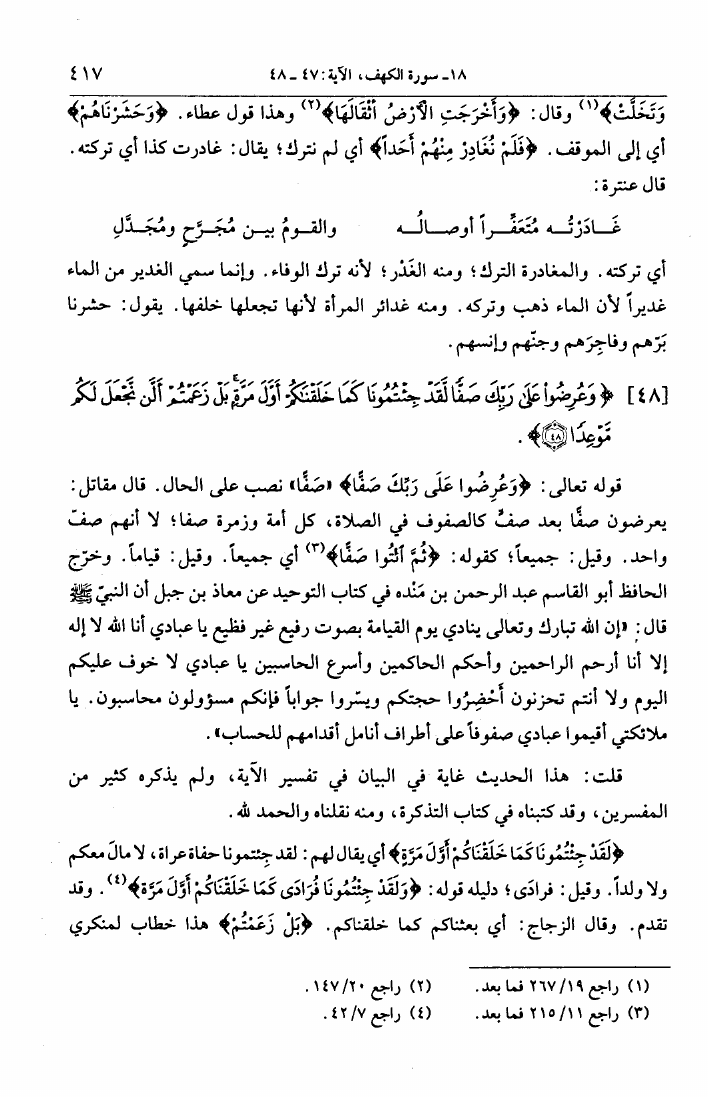 ١٨ـ سورة الكهف، الآية: ٤٧ ـ ٤٨ ٤١٧
وَتَخَلَّتْ﴾(١) وقال: ﴿وَأَخْرَجَتِ الْأَرْضُ أَثْقَالَهَا﴾(٢) وهذا قول عطاء. ﴿وَحَشَرْنَاهُمْ﴾
أي إلى الموقف. ﴿فَلَمْ نُغَادِرْ مِنْهُمْ أَحَداً﴾ أي لم نترك؛ يقال: غادرت كذا أي تركته.
قال عنترة:
غَـادَرْتُـه مُتَعَفِّـراً أوصـالُـه والقـومُ بيـن مُجَـرَّحٍ ومُجَـدَّلِ
أي تركته. والمغادرة الترك؛ ومنه الغَدْر؛ لأنه ترك الوفاء. وإنما سمي الغدير من الماء
غديراً لأن الماء ذهب وتركه. ومنه غدائر المرأة لأنها تجعلها خلفها. يقول: حشرنا
بَرّهم وفاجِرَهم وجنّهم وإنسهم.
[٤٨] ﴿وَعُرِضُوا۟ عَلَىٰ رَبِّكَ صَفًّا لَّقَدْ جِئْتُمُونَا كَمَا خَلَقْنَٰكُمْ أَوَّلَ مَرَّةٍۭ ۚ بَلْ زَعَمْتُمْ أَلَّن نَّجْعَلَ لَكُم
مَّوْعِدًا ٤٨﴾.
قوله تعالى: ﴿وَعُرِضُوا عَلَى رَبِّكَ صَفًّا﴾ «صَفًّا» نصب على الحال. قال مقاتل:
يعرضون صفًّا بعد صفٌّ كالصفوف في الصلاة، كل أمة وزمرة صفا؛ لا أنهم صفّ
واحد. وقيل: جميعاً؛ كقوله: ﴿ثُمَّ ائْتُوا صَفًّا﴾(٣) أي جميعاً. وقيل: قياماً. وخرّج
الحافظ أبو القاسم عبد الرحمن بن مَنْده في كتاب التوحيد عن معاذ بن جبل أن النبيّ ﷺ
قال: «إن الله تبارك وتعالى ينادي يوم القيامة بصوت رفيع غير فظيع يا عبادي أنا الله لا إله
إلا أنا أرحم الراحمين وأحكم الحاكمين وأسرع الحاسبين يا عبادي لا خوف عليكم
اليوم ولا أنتم تحزنون أَحْضِرُوا حجتكم ويسّروا جواباً فإنكم مسؤولون محاسبون. يا
ملائكتي أقيموا عبادي صفوفاً على أطراف أنامل أقدامهم للحساب».
قلت: هذا الحديث غاية في البيان في تفسير الآية، ولم يذكره كثير من
المفسرين، وقد كتبناه في كتاب التذكرة، ومنه نقلناه والحمد لله.
﴿لَقَدْ جِئْتُمُونَا كَمَا خَلَقْنَاكُمْ أَوَّلَ مَرَّةٍ﴾ أي يقال لهم: لقد جئتمونا حفاة عراة، لا مالَ معكم
ولا ولداً. وقيل: فرادَى؛ دليله قوله: ﴿وَلَقَدْ جِئْتُمُونَا فُرَادَى كَمَا خَلَقْنَاكُمْ أَوَّلَ مَرَّةٍ﴾(٤). وقد
تقدم. وقال الزجاج: أي بعثناكم كما خلقناكم. ﴿بَلْ زَعَمْتُمْ﴾ هذا خطاب لمنكري
(١) راجع ٢٦٧/١٩ فما بعد. (٢) راجع ١٤٧/٢٠.
(٣) راجع ٢١٥/١١ فما بعد. (٤) راجع ٤٢/٧.